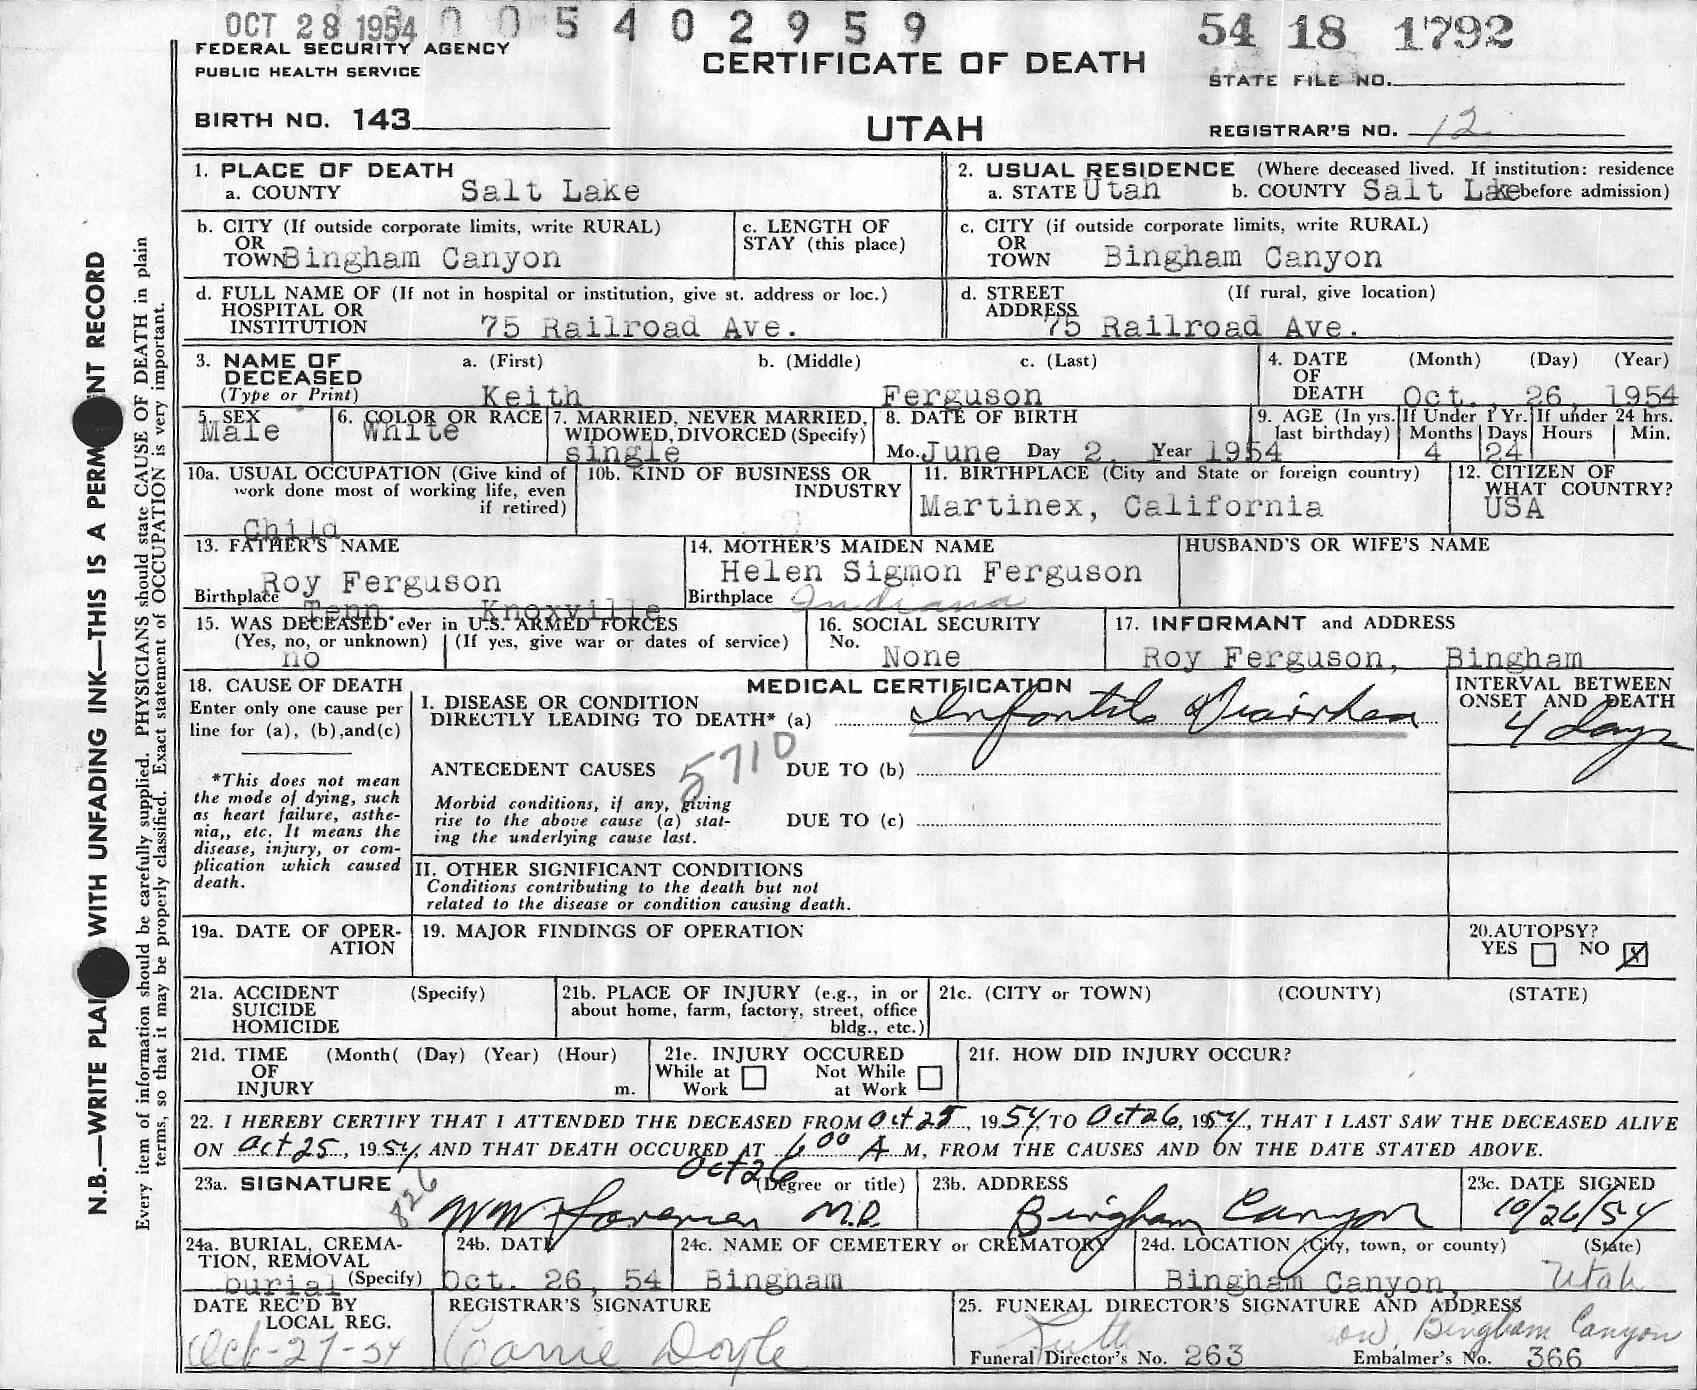 OCT 28 1954 0 0 5 4 0 2 9 5 9 54 18 1792
FEDERAL SECURITY AGENCY
PUBLIC HEALTH SERVICE
CERTIFICATE OF DEATH
STATE FILE NO.
BIRTH NO. 143
UTAH
REGISTRAR'S NO. 12
1. PLACE OF DEATH
a. COUNTY Salt Lake
2. USUAL RESIDENCE (Where deceased lived. If institution: residence
a. STATE Utah b. COUNTY Salt Lake before admission)
b. CITY (If outside corporate limits, write RURAL)
OR
TOWN Bingham Canyon
c. LENGTH OF
STAY (this place)
c. CITY (if outside corporate limits, write RURAL)
OR
TOWN Bingham Canyon
d. FULL NAME OF (If not in hospital or institution, give st. address or loc.)
HOSPITAL OR
INSTITUTION 75 Railroad Ave.
d. STREET (If rural, give location)
ADDRESS
75 Railroad Ave.
3. NAME OF a. (First) b. (Middle) c. (Last)
DECEASED
(Type or Print) Keith Ferguson
4. DATE (Month) (Day) (Year)
OF
DEATH Oct. 26, 1954
5. SEX
Male
6. COLOR OR RACE
White
7. MARRIED, NEVER MARRIED,
WIDOWED, DIVORCED (Specify)
single
8. DATE OF BIRTH
Mo. June Day 2, Year 1954
9. AGE (In yrs. last birthday)
If Under 1 Yr. If under 24 hrs.
Months Days Hours Min.
4 24
10a. USUAL OCCUPATION (Give kind of
work done most of working life, even
if retired)
Child
10b. KIND OF BUSINESS OR
INDUSTRY
11. BIRTHPLACE (City and State or foreign country)
Martinex, California
12. CITIZEN OF
WHAT COUNTRY?
USA
13. FATHER'S NAME
Roy Ferguson
Birthplace
Tenn. Knoxville
14. MOTHER'S MAIDEN NAME
Helen Sigmon Ferguson
Birthplace Indiana
HUSBAND'S OR WIFE'S NAME
15. WAS DECEASED ever in U.S. ARMED FORCES
(Yes, no, or unknown) (If yes, give war or dates of service)
no
16. SOCIAL SECURITY
No.
None
17. INFORMANT and ADDRESS
Roy Ferguson, Bingham
18. CAUSE OF DEATH
Enter only one cause per
line for (a), (b),and(c)
*This does not mean
the mode of dying, such
as heart failure, asthe-
nia,, etc. It means the
disease, injury, or com-
plication which caused
death.
MEDICAL CERTIFICATION
I. DISEASE OR CONDITION
DIRECTLY LEADING TO DEATH* (a) Infantile Diarrhea
INTERVAL BETWEEN
ONSET AND DEATH
4 days
5710
ANTECEDENT CAUSES DUE TO (b)
Morbid conditions, if any, giving
rise to the above cause (a) stat-
ing the underlying cause last.
DUE TO (c)
II. OTHER SIGNIFICANT CONDITIONS
Conditions contributing to the death but not
related to the disease or condition causing death.
19a. DATE OF OPER-
ATION
19. MAJOR FINDINGS OF OPERATION
20.AUTOPSY?
YES NO X
21a. ACCIDENT (Specify)
SUICIDE
HOMICIDE
21b. PLACE OF INJURY (e.g., in or
about home, farm, factory, street, office
bldg., etc.)
21c. (CITY or TOWN) (COUNTY) (STATE)
21d. TIME (Month( (Day) (Year) (Hour)
OF
INJURY m.
21e. INJURY OCCURED
While at Not While
Work at Work
21f. HOW DID INJURY OCCUR?
22. I HEREBY CERTIFY THAT I ATTENDED THE DECEASED FROM Oct 25, 1954, TO Oct 26, 1954, THAT I LAST SAW THE DECEASED ALIVE
ON Oct 25, 1954, AND THAT DEATH OCCURED AT 6 00 A M, FROM THE CAUSES AND ON THE DATE STATED ABOVE.
Oct 26
23a. SIGNATURE (Degree or title)
826
M.D.
23b. ADDRESS
Bingham Canyon
23c. DATE SIGNED
10/26/54
24a. BURIAL, CREMA-
TION, REMOVAL
burial (Specify)
24b. DATE
Oct. 26, 54
24c. NAME OF CEMETERY or CREMATORY
Bingham
24d. LOCATION (City, town, or county) (State)
Bingham Canyon, Utah
DATE REC'D BY
LOCAL REG.
Oct-27-54
REGISTRAR'S SIGNATURE
Carrie Doyle
25. FUNERAL DIRECTOR'S SIGNATURE AND ADDRESS
Bingham Canyon
Funeral Director's No. 263 Embalmer's No. 366
N.B.—WRITE PLAI WITH UNFADING INK—THIS IS A PERM NT RECORD
Every item of information should be carefully supplied. PHYSICIANS should state CAUSE OF DEATH in plain
terms, so that it may be properly classified. Exact statement of OCCUPATION is very important.